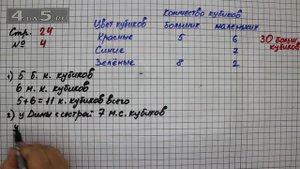 4
РАЗА5.RU
Стр. 24
№ 4
Количество кубиков
Цвет кубиков Больших маленьких
Красные 5 6 30 больш. кубиков
Синие 7
Зелёные 8 2
1) 5 Б. к. кубиков
6 м. к. кубиков
5+6=11 к. кубиков всего
2) у Димы с сестрой 7 м.с. кубиков